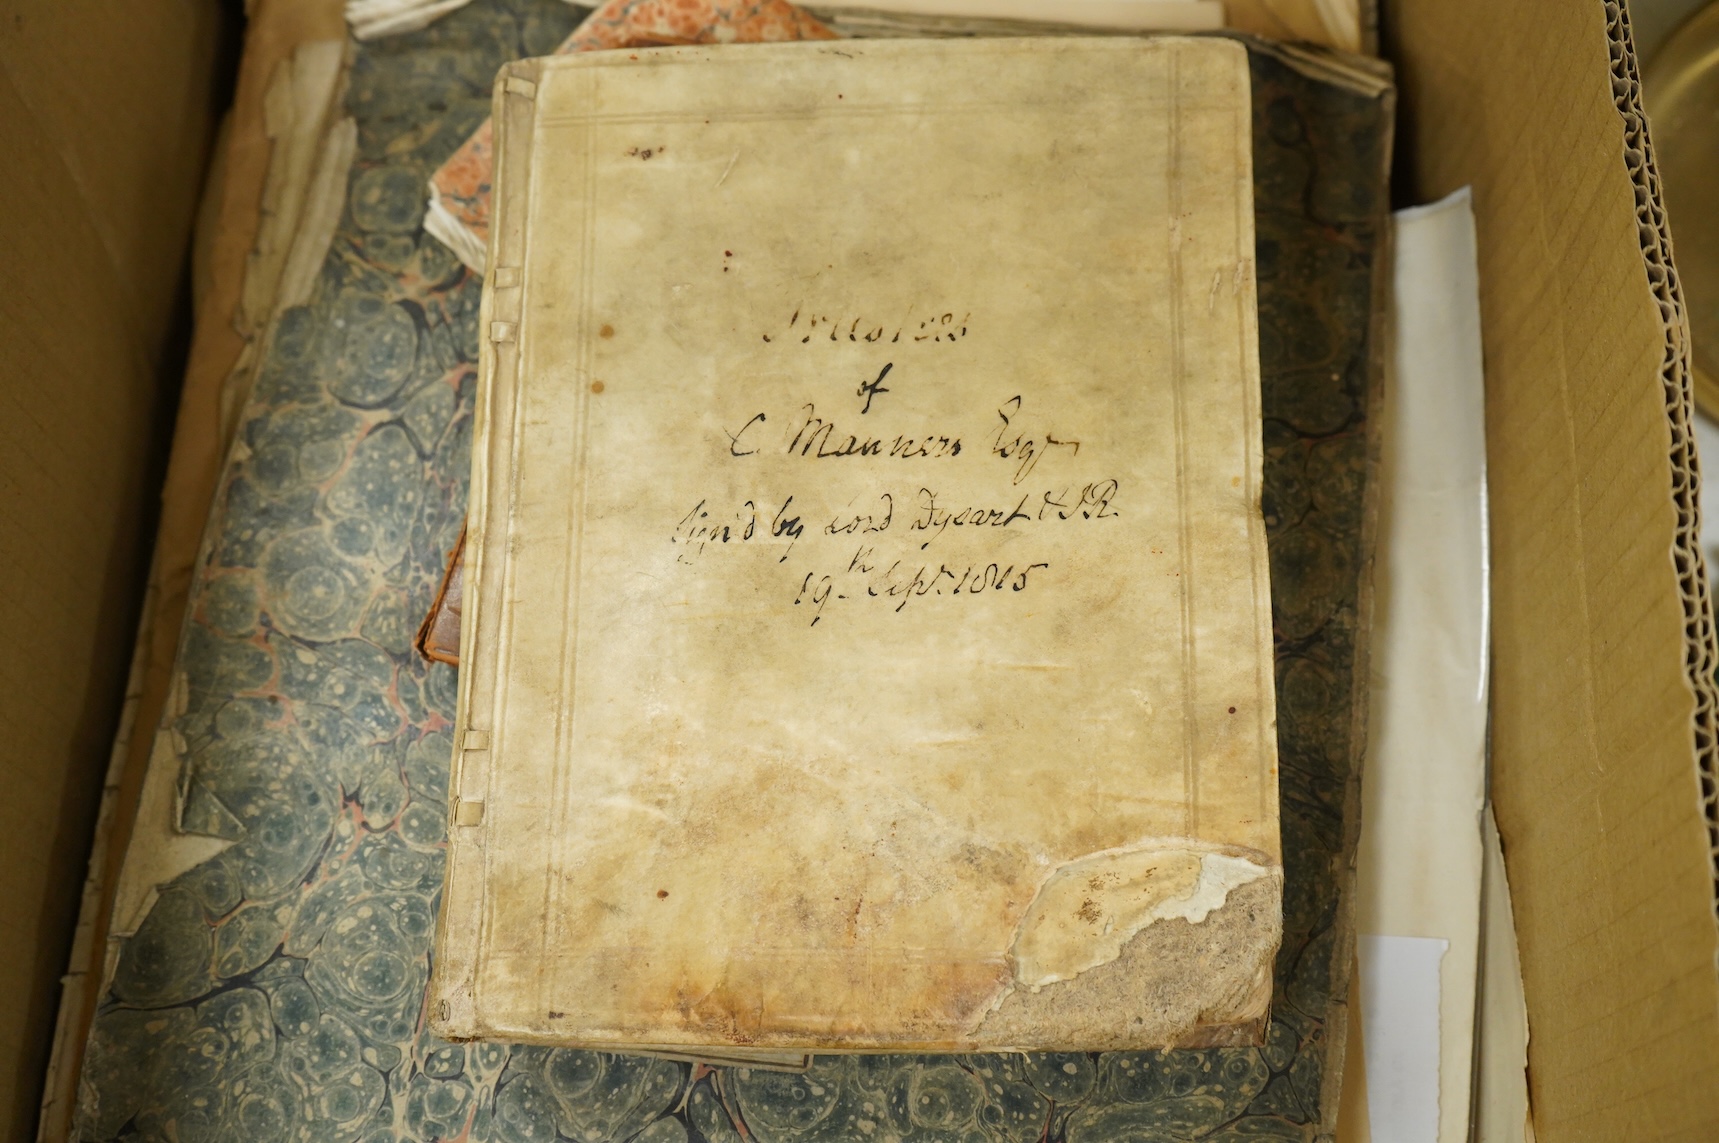 of
C. Manners Esqr
Sign'd by Lord Dysart & J.R.
19th Sepr. 1815